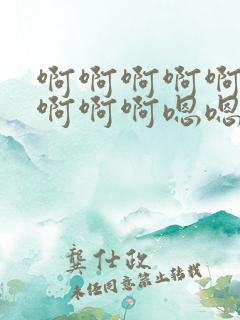 啊啊啊啊啊
啊啊啊嗯嗯
龚仕政
未经同意禁止转载